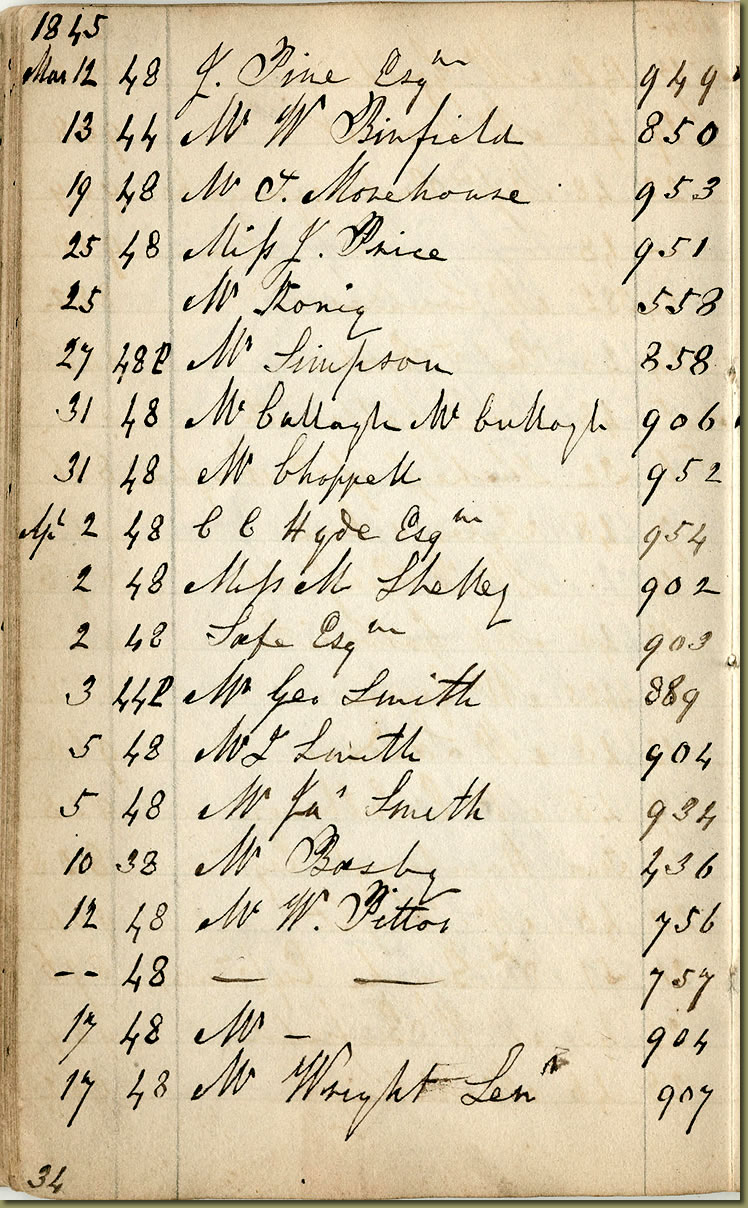 1845
Mar 12 48 J. Pine Esqre 949
13 44 Mr W Binfield 850
19 48 Mr T. Morehouse 953
25 48 Miss J. Price 951
25 Mr Konig 558
27 48P Mr Simpson 858
31 48 Mr Cullagh Mr Cullogh 906
31 48 Mr Chappell 952
Apl 2 48 C C Hyde Esqre 954
2 48 Miss M Shelley 902
2 48 Safe Esqre 903
3 44P Mr Geo Smith 889
5 48 Mr J Smith 904
5 48 Mr Jas Smith 934
10 38 Mr Busby 436
12 48 Mr W. Pittor 756
-- 48 — — 757
17 48 Mr - 904
17 48 Mr Wright Senr 907
34